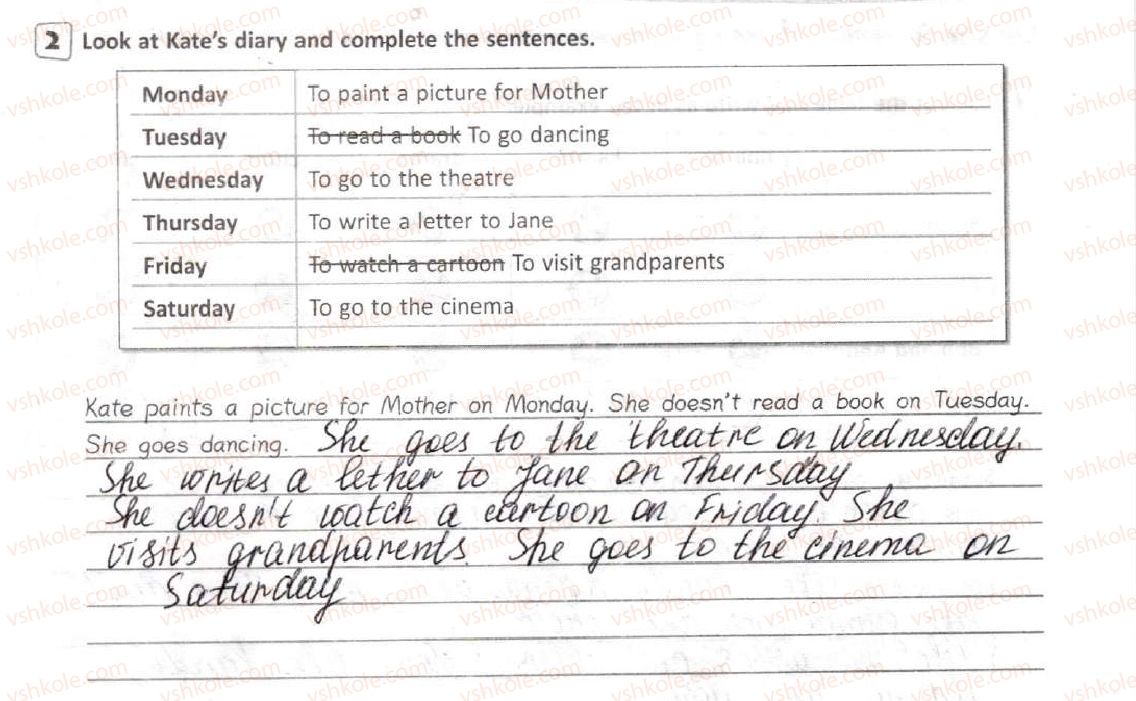 2 Look at Kate's diary and complete the sentences.
Monday To paint a picture for Mother
Tuesday To read a book To go dancing
Wednesday To go to the theatre
Thursday To write a letter to Jane
Friday To watch a cartoon To visit grandparents
Saturday To go to the cinema
Kate paints a picture for Mother on Monday. She doesn't read a book on Tuesday.
She goes dancing. She goes to the theatre on Wednesday.
She writes a lether to Jane on Thursday
She doesn't watch a cartoon on Friday. She
visits grandparents. She goes to the cinema on
Saturday
vshkole.com